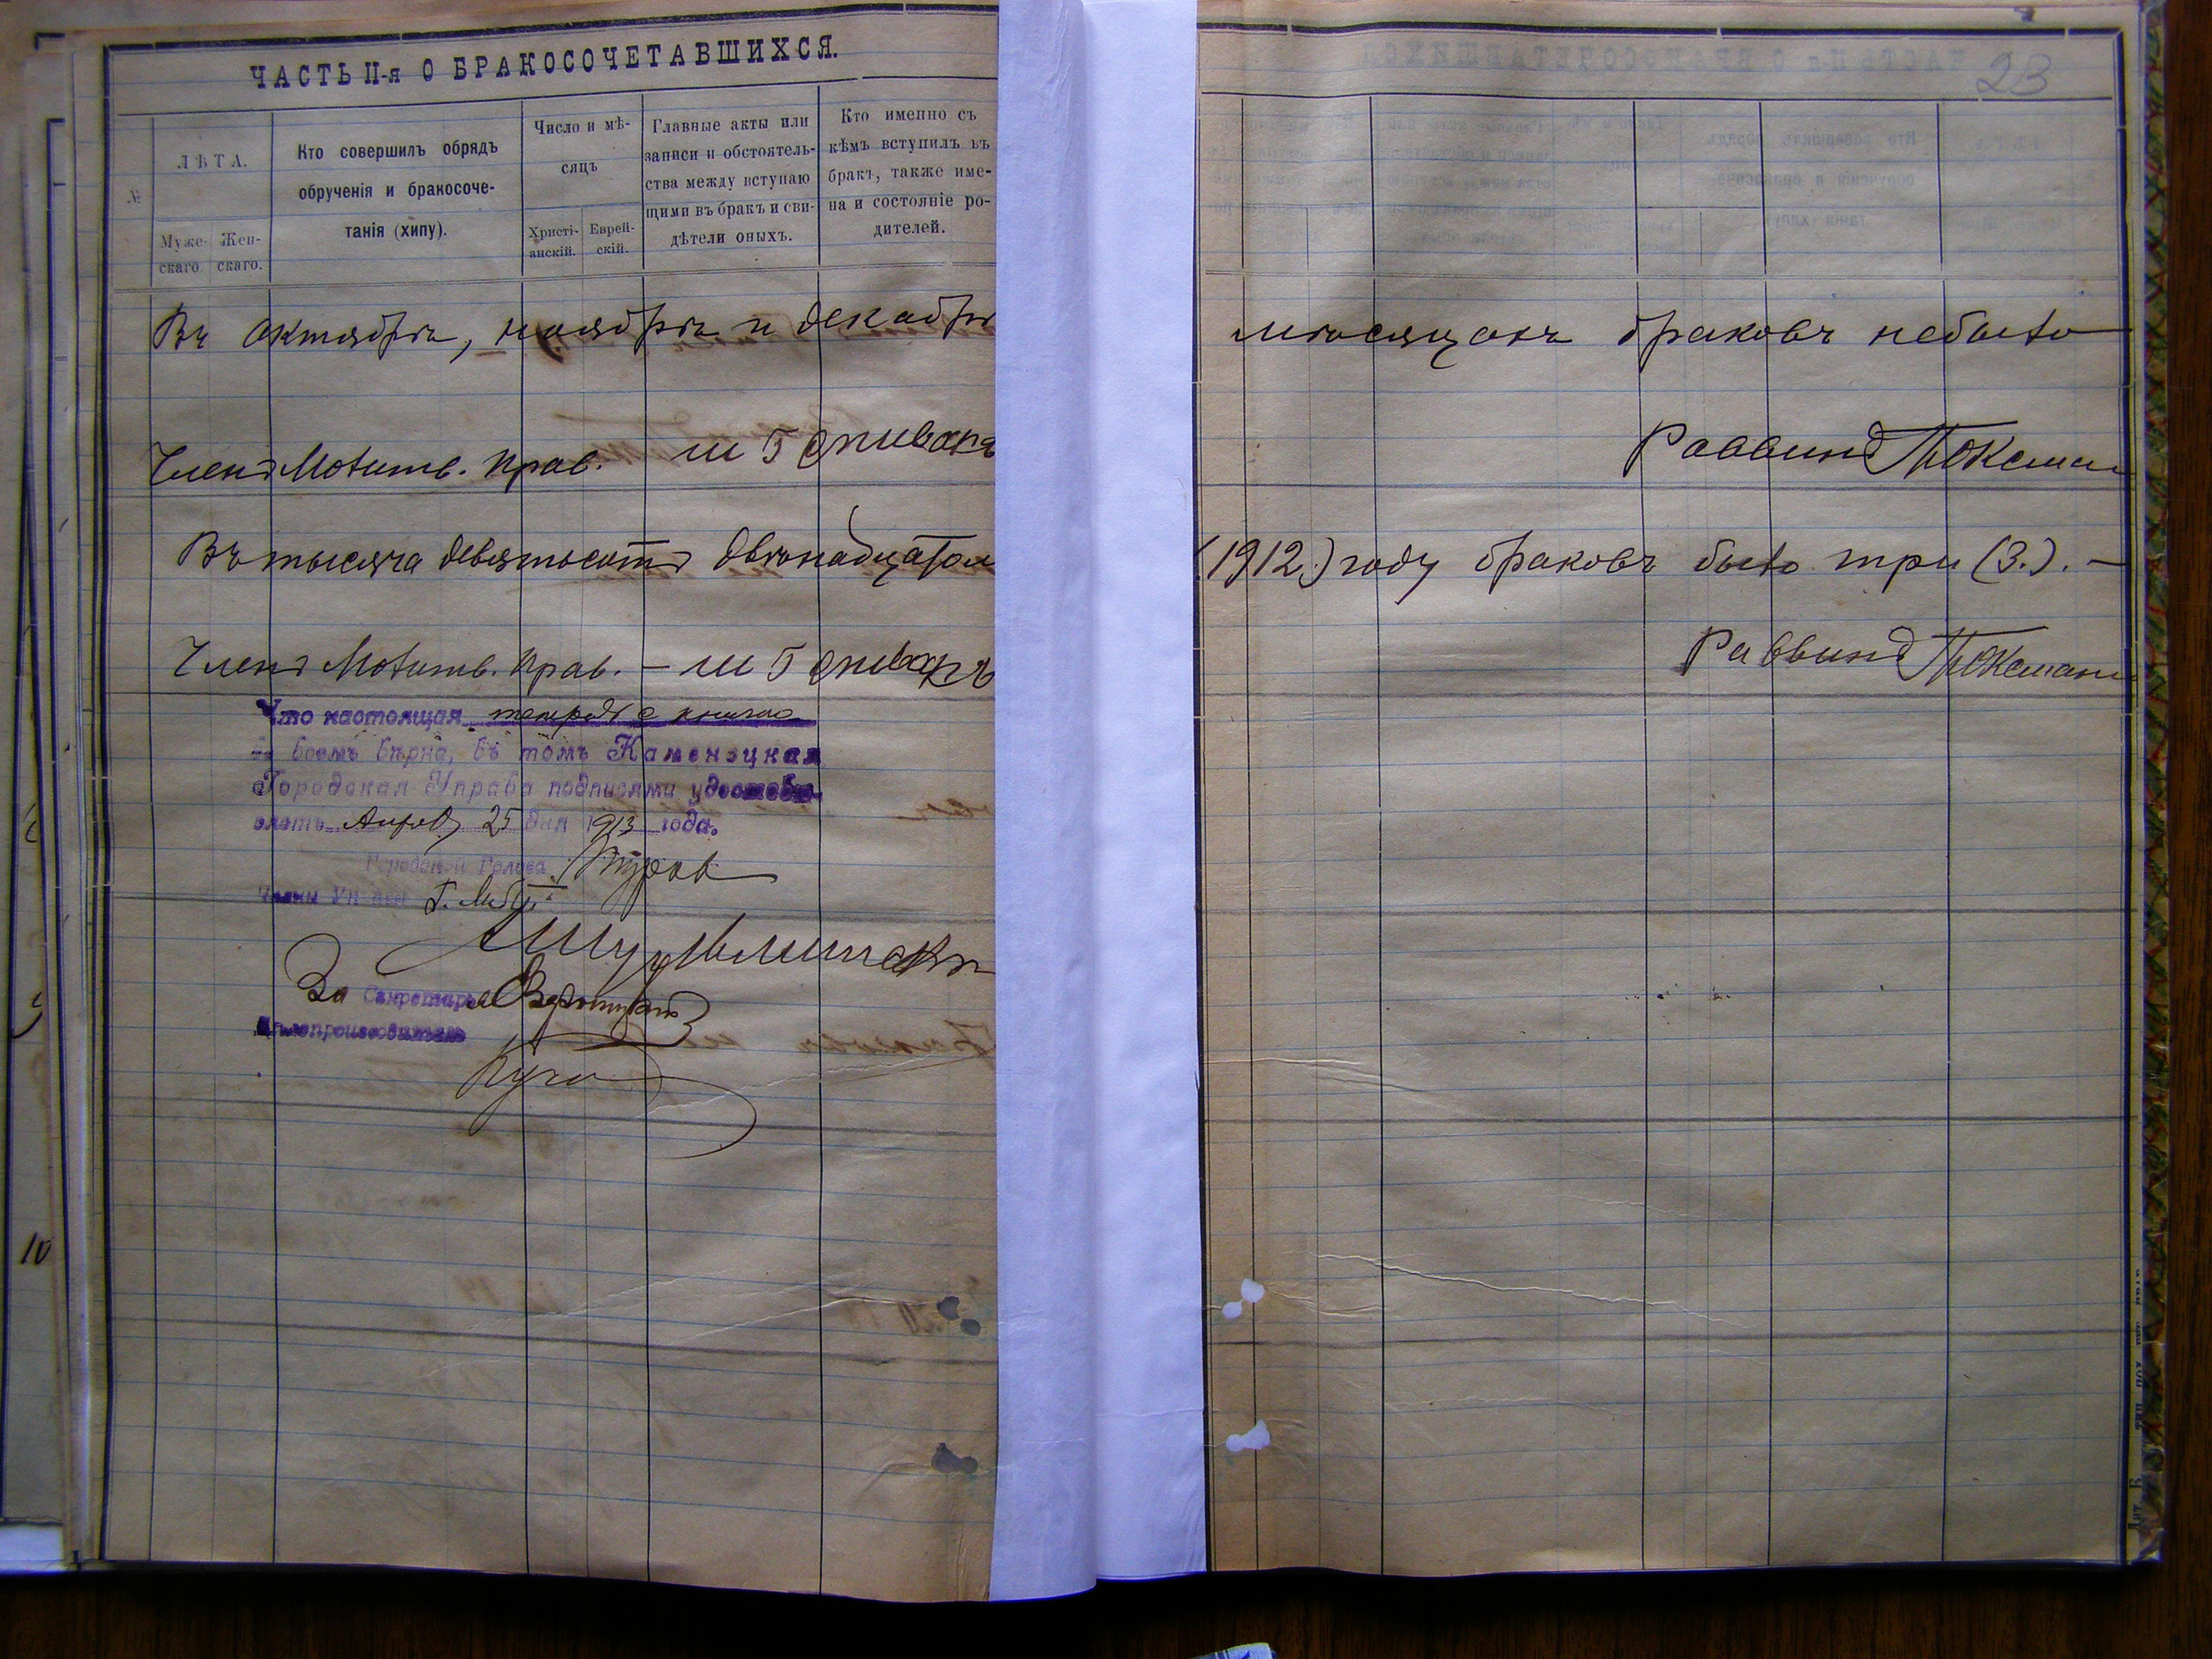 ЧАСТЬ II-я О БРАКОСОЧЕТАВШИХСЯ.
23
№
ЛѢТА.
Муже-
скаго
Жен-
скаго.
Кто совершилъ обрядъ
обрученія и бракосоче-
танія (хипу).
Число и мѣ-
сяцъ
Христі-
анскій.
Еврей-
скій.
Главные акты или
записи и обстоятель-
ства между вступаю
щими въ бракъ и сви-
дѣтели оныхъ.
Кто именно съ
кѣмъ вступилъ въ
бракъ, также име-
на и состояніе ро-
дителей.
Въ октябрѣ, ноябрѣ и декабрѣ мѣсяцахъ браковъ небыло
Членъ Молитв. Прав.
Раввинъ
Въ тысяча девятьсотъ двѣнадцатом (1912) году браковъ было три (3.). —
Членъ Молитв. Прав. —
Раввинъ
Что настоящая
вѣрна, въ томъ Каменецкая
Городская Управа подписями удостовѣ-
25 дня 1913 года.
Городской Голова
Члены
За Секретаря
Дѣлопроизводитель
10